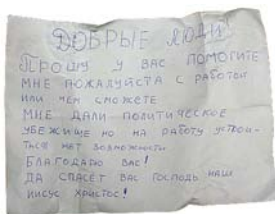 ДОБРЫЕ ЛЮДИ!
ПРОШУ У ВАС ПОМОГИТЕ
МНЕ ПОЖАЛУЙСТА С РАБОТОЙ
ИЛИ ЧЕМ СМОЖЕТЕ
МНЕ ДАЛИ ПОЛИТИЧЕСКОЕ
УБЕЖИЩЕ НО НА РАБОТУ УСТРОИ-
ТЬСЯ НЕТ ВОЗМОЖНОСТИ
БЛАГОДАРЮ ВАС!
ДА СПАСЁТ ВАС ГОСПОДЬ НАШ
ИИСУС ХРИСТОС!